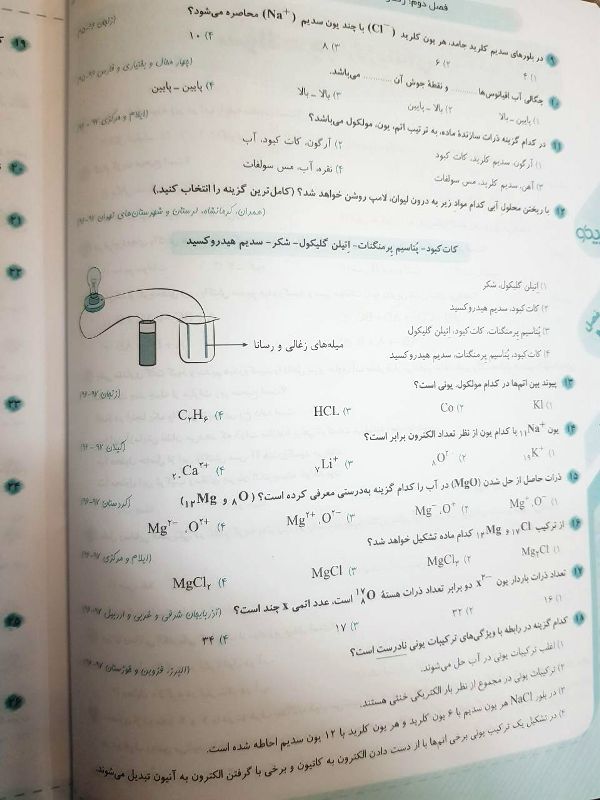 فصل دوم:
۹ در بلورهای سدیم کلرید جامد، هر یون کلرید (Cl⁻) با چند یون سدیم (Na⁺) محاصره می‌شود؟
۱) ۴ ۲) ۶ ۳) ۸ ۴) ۱۰
۱۰ چگالی آب اقیانوس‌ها .......... و نقطهٔ جوش آن .......... می‌باشد.
۱) پایین ـ بالا ۲) بالا ـ پایین ۳) بالا ـ بالا ۴) پایین ـ پایین
۱۱ در کدام گزینه ذرات سازندهٔ ماده، به ترتیب اتم، یون، مولکول می‌باشد؟ (ایلام و مرکزی ۹۷-۹۶)
۱) آرگون، سدیم کلرید، کات کبود ۲) آرگون، کات کبود، آب
۳) آهن، سدیم کلرید، مس سولفات ۴) نقره، آب، مس سولفات
۱۲ با ریختن محلول آبی کدام مواد زیر به درون لیوان، لامپ روشن خواهد شد؟ (کامل‌ترین گزینه را انتخاب کنید.)
(همدان، کرمانشاه، لرستان و شهرستان‌های تهران ۹۷-۹۶)
کات کبود - پتاسیم پرمنگنات - اتیلن گلیکول - شکر - سدیم هیدروکسید
۱) اتیلن گلیکول، شکر
۲) کات کبود، سدیم هیدروکسید
۳) پتاسیم پرمنگنات، کات کبود، اتیلن گلیکول
۴) کات کبود، پتاسیم پرمنگنات، سدیم هیدروکسید
میله‌های زغالی و رسانا
۱۳ پیوند بین اتم‌ها در کدام مولکول، یونی است؟ (زنجان ۹۷-۹۶)
۱) KI ۲) Co ۳) HCL ۴) C₂H₆
۱۴ یون ₁₁Na⁺ با کدام یون از نظر تعداد الکترون برابر است؟ (گیلان ۹۷-۹۶)
۱) ₁₉K⁺ ۲) ₈O²⁻ ۳) ₇Li⁺ ۴) ₂₀Ca²⁺
۱۵ ذرات حاصل از حل شدن (MgO) در آب را کدام گزینه به‌درستی معرفی کرده است؟ (₈O و ₁₂Mg) (کردستان ۹۷-۹۶)
۱) Mg⁺, O⁻ ۲) Mg⁻, O⁺ ۳) Mg²⁺, O²⁻ ۴) Mg²⁻, O²⁺
۱۶ از ترکیب ₁₇Cl و ₁₂Mg کدام ماده تشکیل خواهد شد؟ (ایلام و مرکزی ۹۷-۹۶)
۱) Mg₂Cl ۲) MgCl₃ ۳) MgCl ۴) MgCl₂
۱۷ تعداد ذرات باردار یون x²⁻ دو برابر تعداد ذرات هستهٔ ¹⁷₈O است، عدد اتمی x چند است؟ (آذربایجان شرقی و غربی و اردبیل ۹۷-۹۶)
۱) ۱۶ ۲) ۳۲ ۳) ۱۷ ۴) ۳۴
۱۸ کدام گزینه در رابطه با ویژگی‌های ترکیبات یونی نادرست است؟ (البرز، قزوین و خوزستان ۹۷-۹۶)
۱) اغلب ترکیبات یونی در آب حل می‌شوند.
۲) ترکیبات یونی در مجموع از نظر بار الکتریکی خنثی هستند.
۳) در بلور NaCl هر یون سدیم با ۶ یون کلرید و هر یون کلرید با ۱۲ یون سدیم احاطه شده است.
۴) در تشکیل یک ترکیب یونی برخی اتم‌ها با از دست دادن الکترون به کاتیون و برخی با گرفتن الکترون به آنیون تبدیل می‌شوند.
۱۹
۲۰
۲۱
۲۲
۲۳
۲۴
۲۵
۲۶